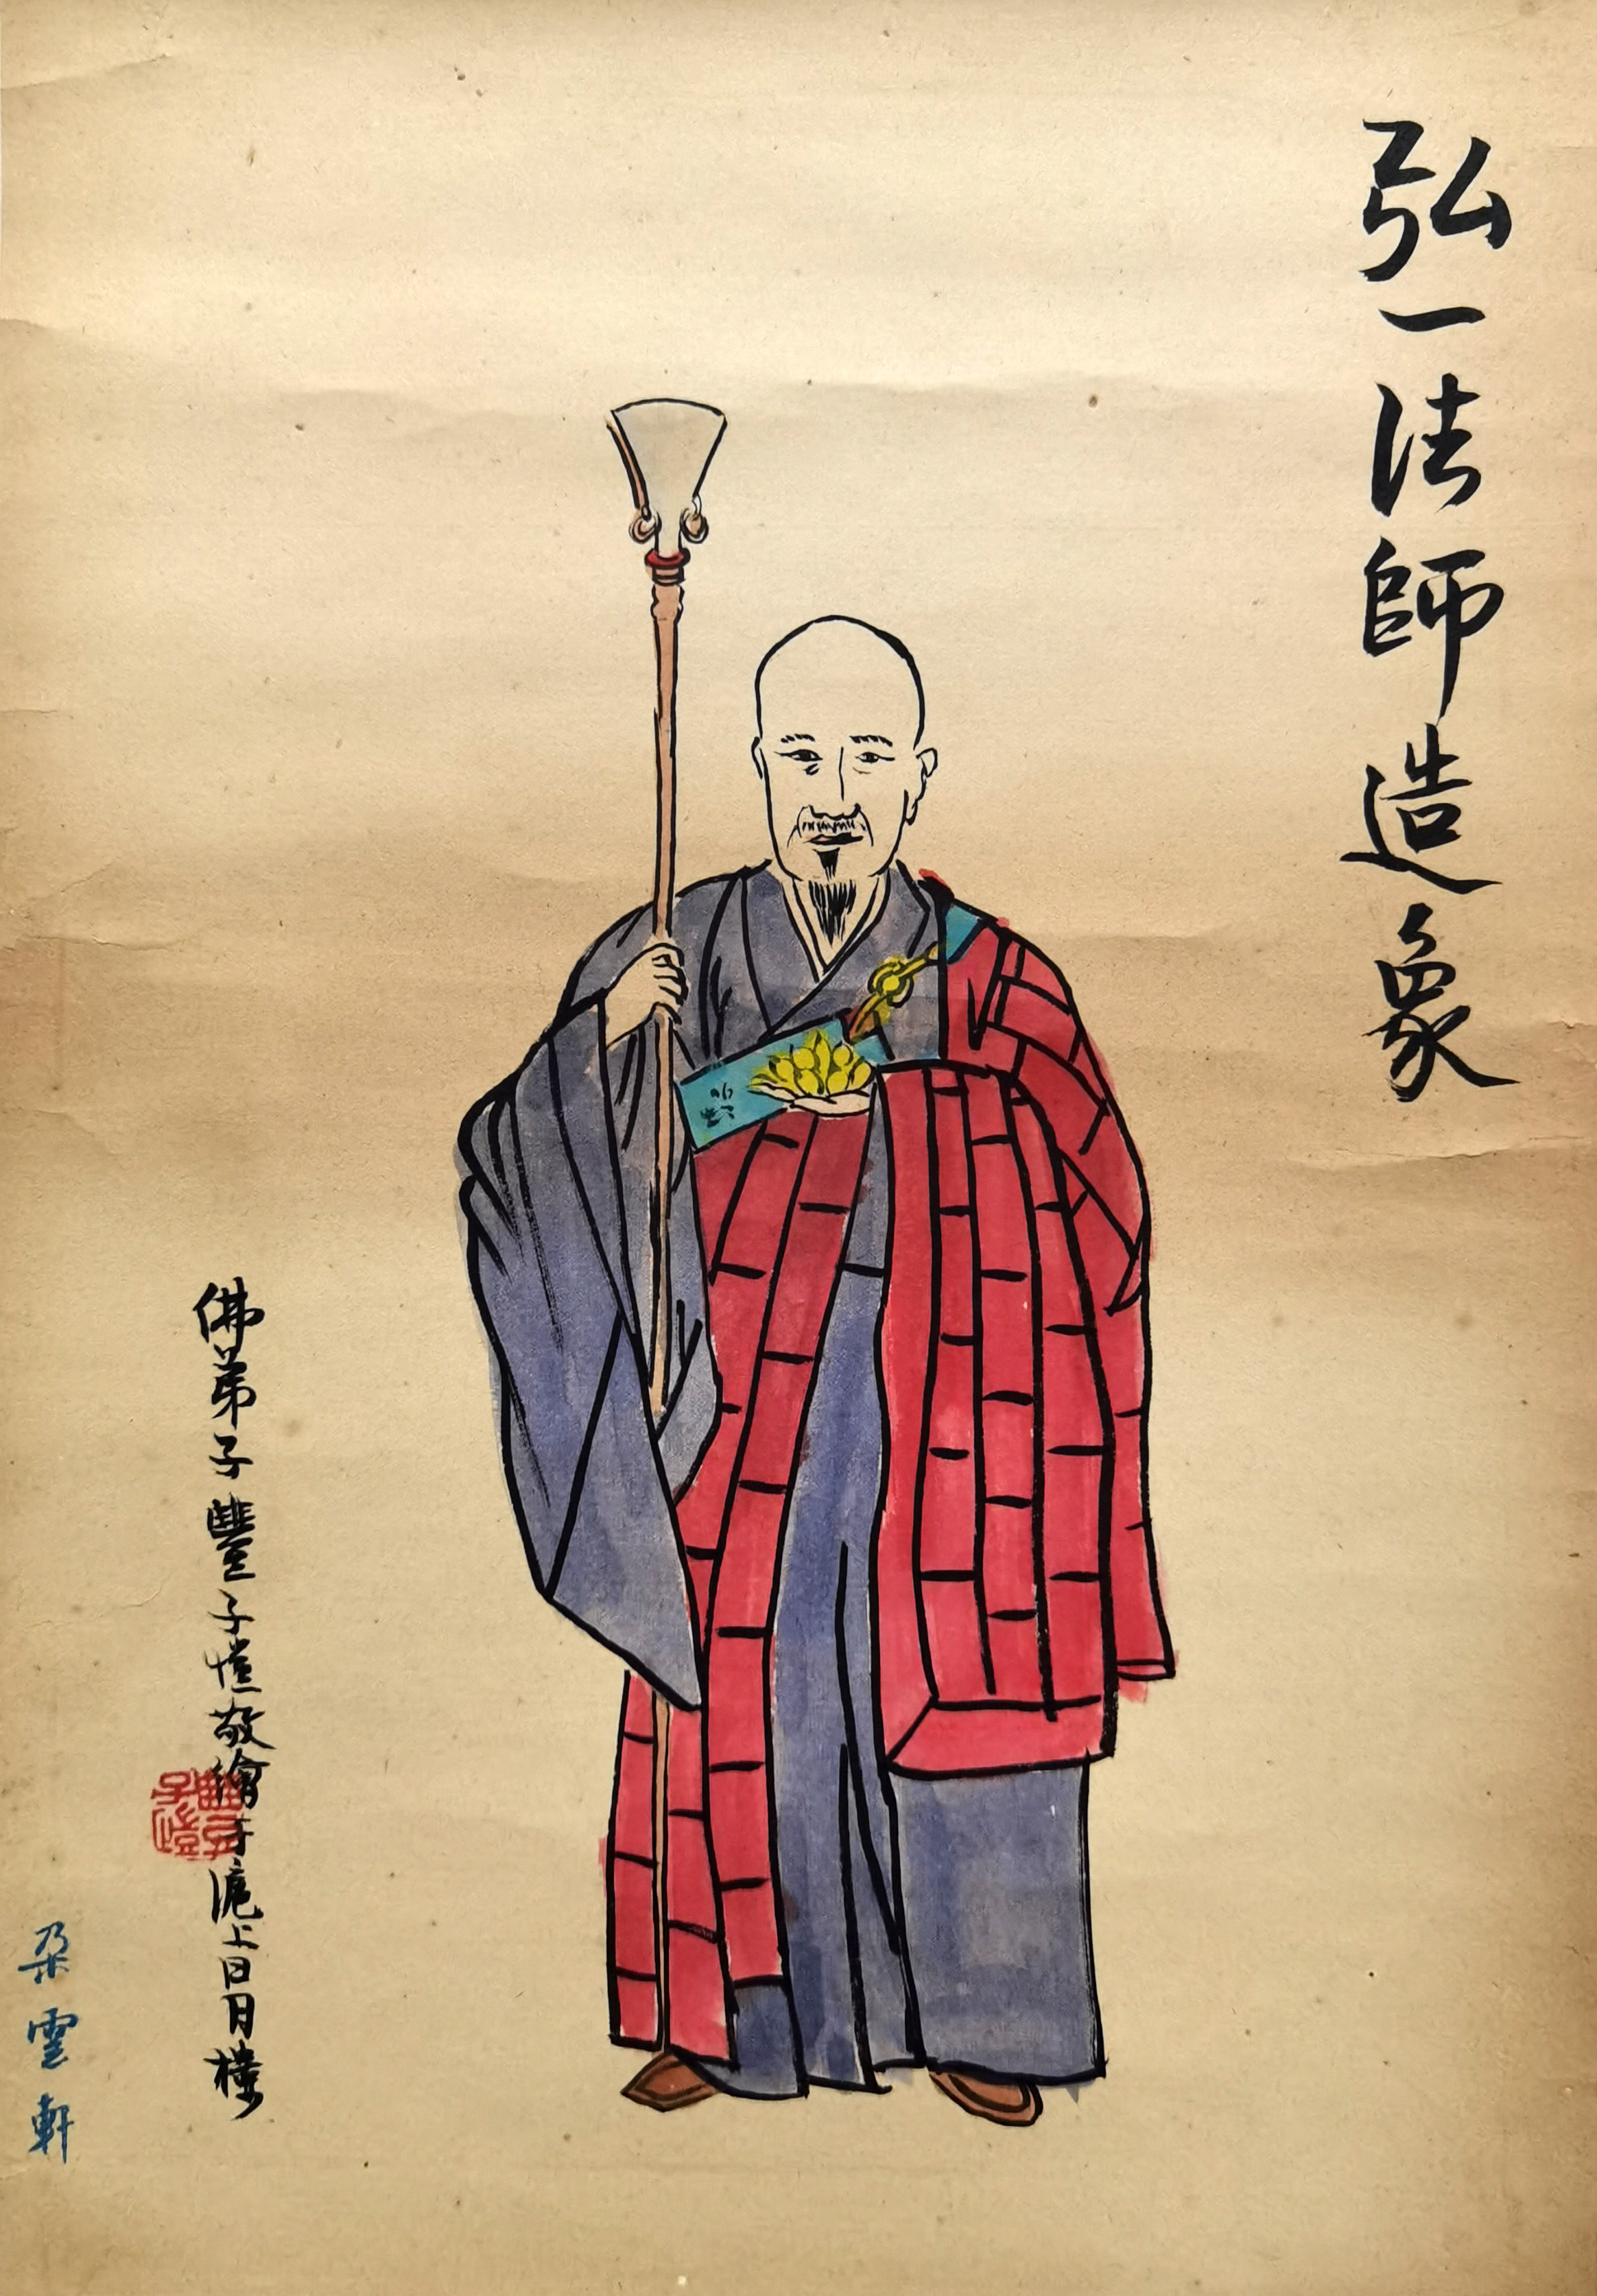 弘一法師造象
佛弟子豐子愷敬繪于滬上日月樓
豐子愷
朵雲軒